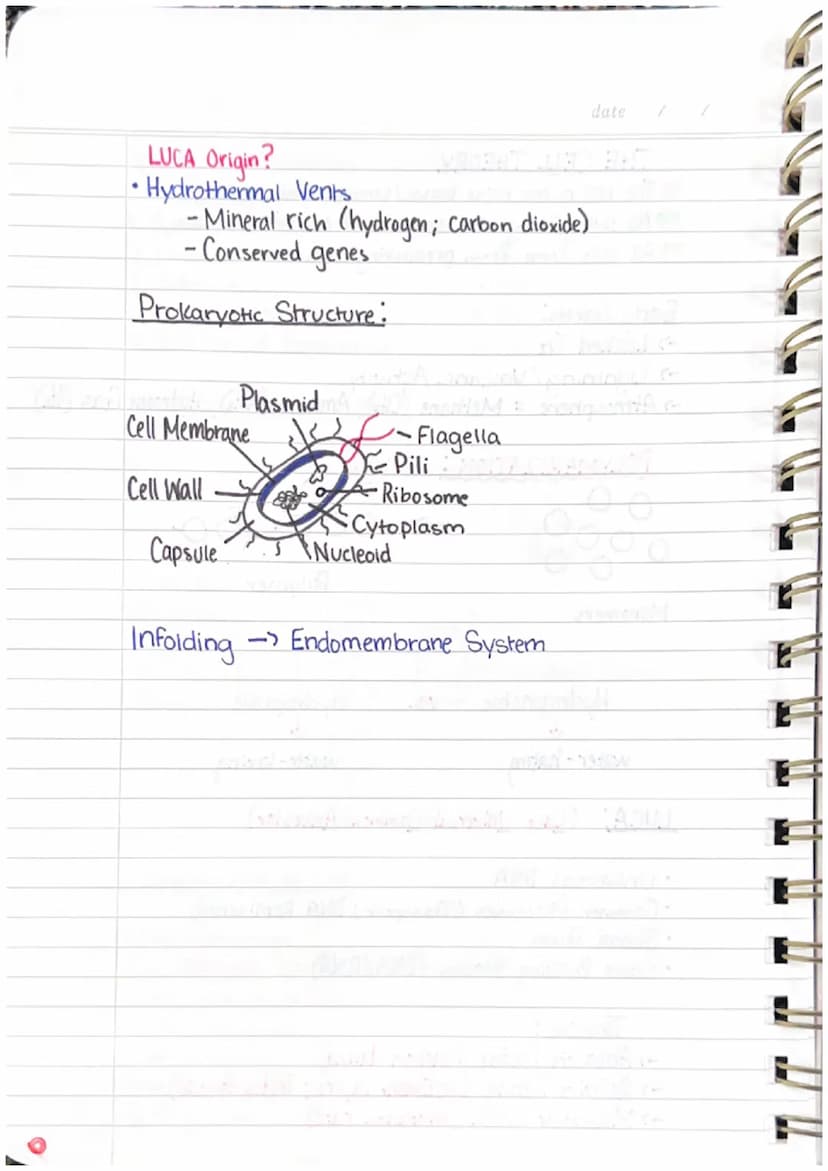 date / /
LUCA Origin?
• Hydrothermal Vents
- Mineral rich (hydrogen; carbon dioxide)
- Conserved genes
Prokaryotic Structure:
Plasmid
Cell Membrane
Flagella
Pili
Cell Wall
Ribosome
Cytoplasm
Capsule
Nucleoid
Infolding -> Endomembrane System